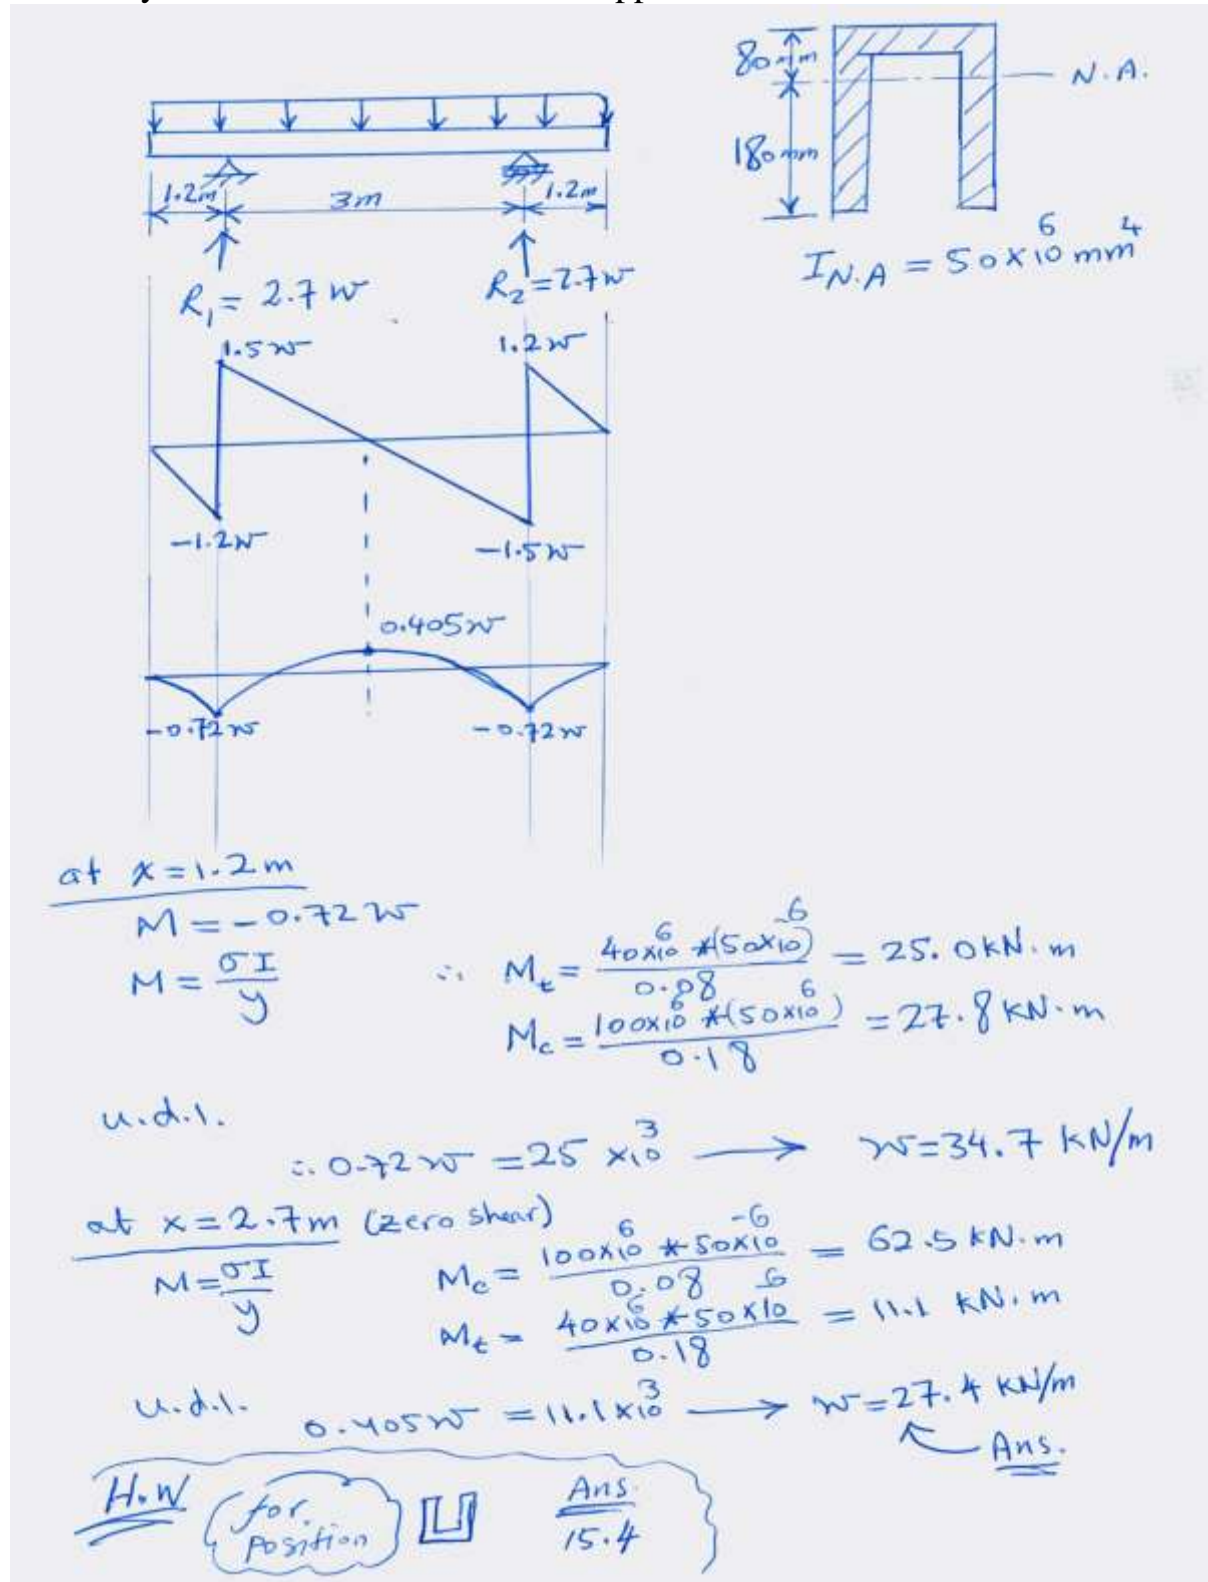 80 mm
N.A.
180 mm
I_N.A = 50x10^6 mm^4
1.2m 3m 1.2m
R_1 = 2.7 w R_2 = 2.7 w
1.5w 1.2w
-1.2w -1.5w
0.405w
-0.72w -0.72w
at x=1.2m
M = -0.72 w
M = σI/y ∴ M_t = 40x10^6 *(50x10^-6)/0.08 = 25.0 kN.m
M_c = 100x10^6 *(50x10^6)/0.18 = 27.8 kN.m
u.d.l.
∴ 0.72 w = 25 x10^3 → w=34.7 kN/m
at x=2.7m (zero shear)
M = σI/y M_c = 100x10^6 * 50x10^-6/0.08 = 62.5 kN.m
M_t = 40x10^6 * 50x10^-6/0.18 = 11.1 kN.m
u.d.l. 0.405w = 11.1x10^3 → w=27.4 kN/m
Ans.
H.W for. position Ans. 15.4